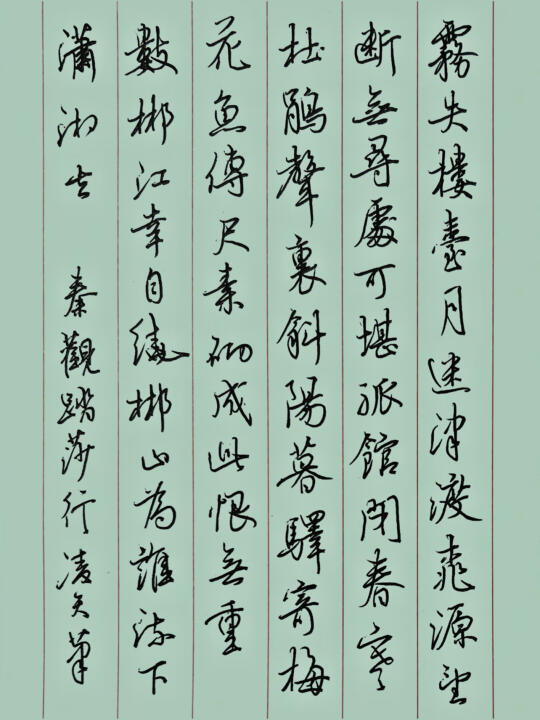 霧失樓臺月迷津渡桃源望
断無尋處可堪孤館閉春寒
杜鵑聲裏斜陽暮驛寄梅
花魚傳尺素砌成此恨無重
數郴江幸自繞郴山為誰流下
瀟湘去 秦觀踏莎行凌筆